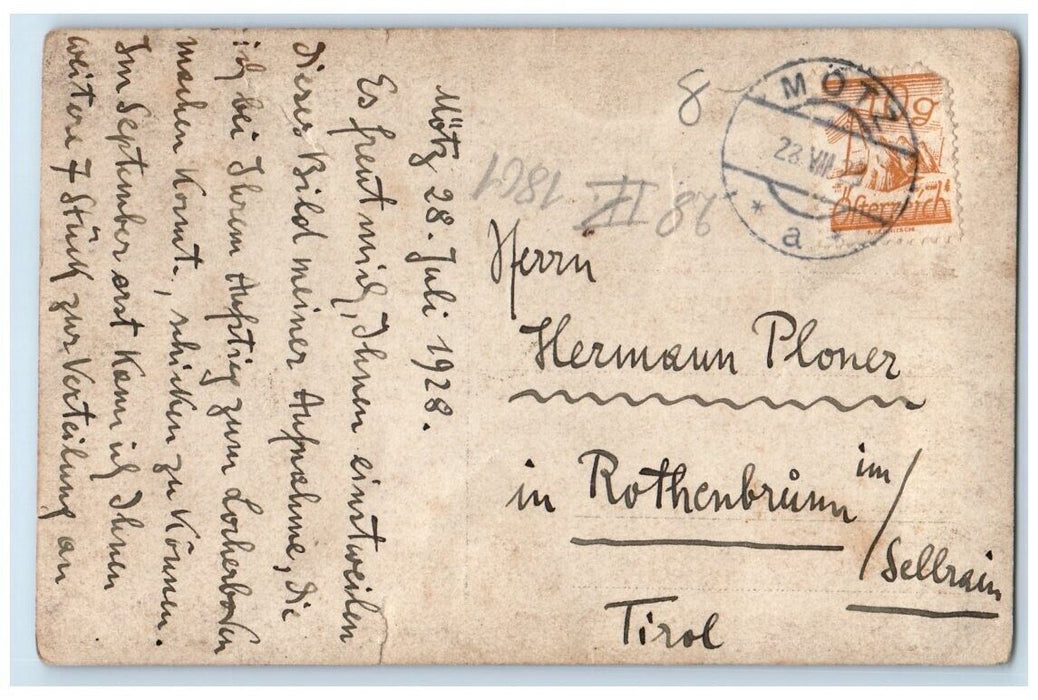 Mötz 28. Juli 1928.
Es freut mich, Ihnen einstweilen
dieses Bild meiner Aufnahme, die
ich bei Ihrem Aufstieg zum Locherboden
machen konnte, schicken zu können.
Im September erst kann ich Ihnen
weitere 7 Stück zur Verteilung an
8
MÖTZ
28. VII.
* a *
10g
Österreich
28 IX 1861
Herrn
Hermann Ploner
in Rothenbrunn im/
Sellrain
Tirol